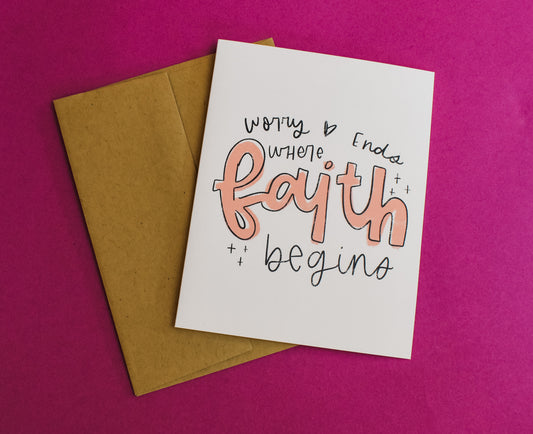 worry Ends
where
faith
begins